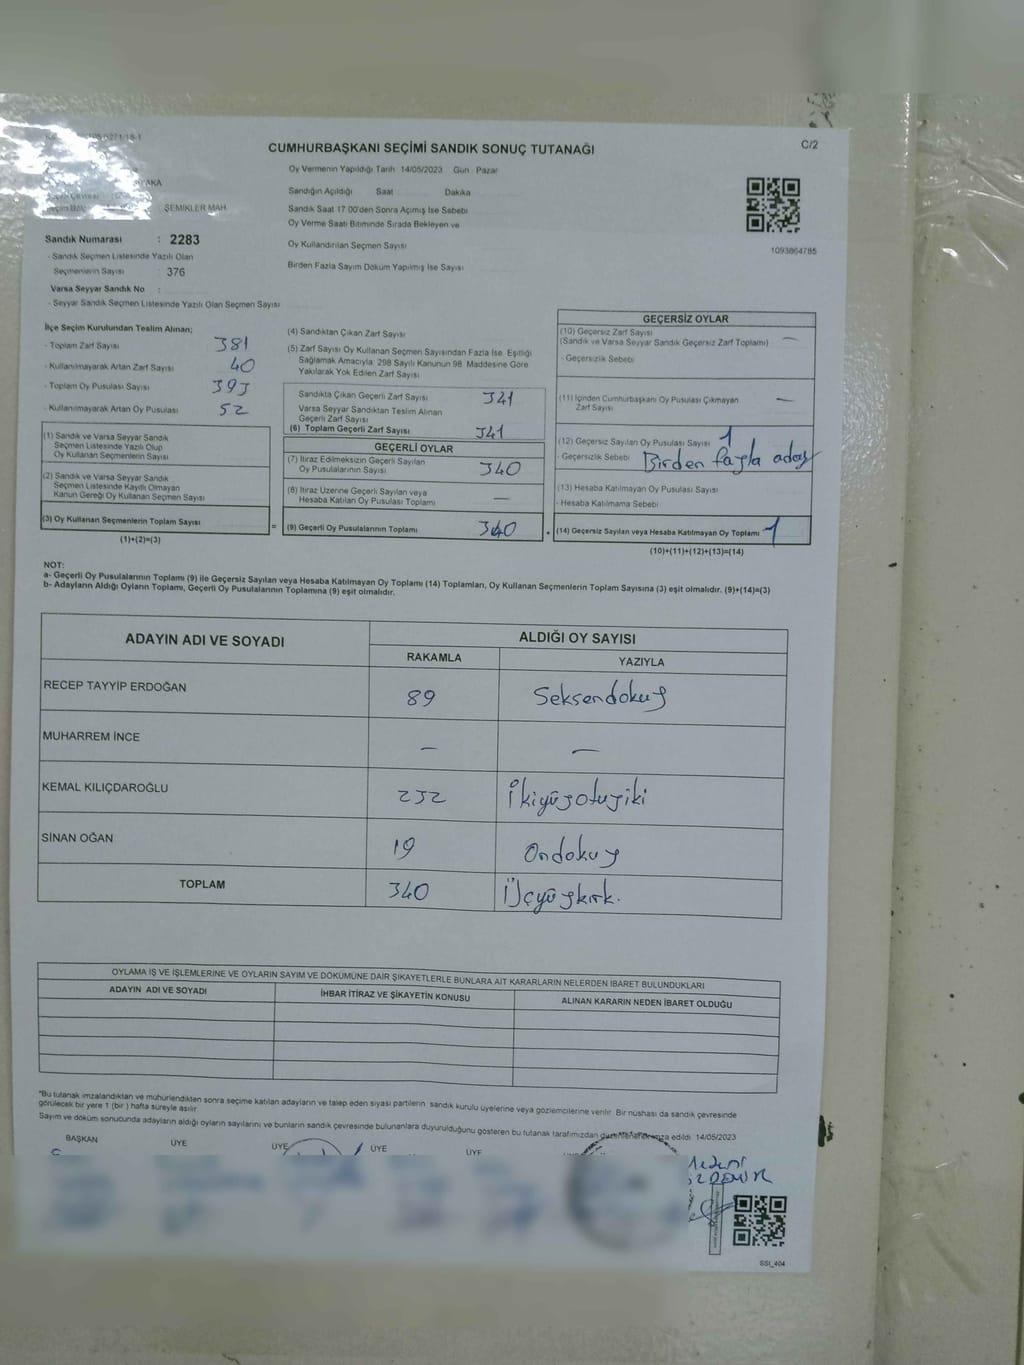 C/2
CUMHURBAŞKANI SEÇİMİ SANDIK SONUÇ TUTANAĞI
Oy Vermenin Yapıldığı Tarih 14/05/2023 Gün : Pazar
Sandığın Açıldığı Saat Dakika
ŞEMİKLER MAH
Sandık Saat 17 00'den Sonra Açımış İse Sebebi
Oy Verme Saati Bitiminde Sırada Bekleyen ve
Oy Kullandırılan Seçmen Sayısı
Birden Fazla Sayım Döküm Yapılmış İse Sayısı
1093864785
Sandık Numarası : 2283
- Sandık Seçmen Listesinde Yazılı Olan
Seçmenlerin Sayısı : 376
Varsa Seyyar Sandık No :
- Seyyar Sandık Seçmen Listesinde Yazılı Olan Seçmen Sayısı
İlçe Seçim Kurulundan Teslim Alınan;
- Toplam Zarf Sayısı 381
- Kullanılmayarak Artan Zarf Sayısı 40
- Toplam Oy Pusulası Sayısı 393
- Kullanılmayarak Artan Oy Pusulası 52
(1) Sandık ve Varsa Seyyar Sandık
Seçmen Listesinde Yazılı Olup
Oy Kullanan Seçmenlerin Sayısı
(2) Sandık ve Varsa Seyyar Sandık
Seçmen Listesinde Kayıtlı Olmayan
Kanun Gereği Oy Kullanan Seçmen Sayısı
(3) Oy Kullanan Seçmenlerin Toplam Sayısı =
(1)+(2)=(3)
(4) Sandıktan Çıkan Zarf Sayısı
(5) Zarf Sayısı Oy Kullanan Seçmen Sayısından Fazla İse. Eşitliği
Sağlamak Amacıyla: 298 Sayılı Kanunun 98. Maddesine Göre
Yakılarak Yok Edilen Zarf Sayısı
Sandıkta Çıkan Geçerli Zarf Sayısı 341
Varsa Seyyar Sandıktan Teslim Alınan
Geçerli Zarf Sayısı
(6) Toplam Geçerli Zarf Sayısı 341
GEÇERLİ OYLAR
(7) İtiraz Edilmeksizin Geçerli Sayılan
Oy Pusulalarının Sayısı 340
(8) İtiraz Üzerine Geçerli Sayılan veya
Hesaba Katılan Oy Pusulası Toplamı —
(9) Geçerli Oy Pusulalarının Toplamı 340
GEÇERSİZ OYLAR
(10) Geçersiz Zarf Sayısı
(Sandık ve Varsa Seyyar Sandık Geçersiz Zarf Toplamı) —
- Geçersizlik Sebebi
(11) İçinden Cumhurbaşkanı Oy Pusulası Çıkmayan
Zarf Sayısı —
(12) Geçersiz Sayılan Oy Pusulası Sayısı 1
- Geçersizlik Sebebi Birden fazla aday
(13) Hesaba Katılmayan Oy Pusulası Sayısı
- Hesaba Katılmama Sebebi
(14) Geçersiz Sayılan veya Hesaba Katılmayan Oy Toplamı 1
(10)+(11)+(12)+(13)=(14)
NOT:
a- Geçerli Oy Pusulalarının Toplamı (9) ile Geçersiz Sayılan veya Hesaba Katılmayan Oy Toplamı (14) Toplamları, Oy Kullanan Seçmenlerin Toplam Sayısına (3) eşit olmalıdır. (9)+(14)=(3)
b- Adayların Aldığı Oyların Toplamı, Geçerli Oy Pusulalarının Toplamına (9) eşit olmalıdır.
ADAYIN ADI VE SOYADI ALDIĞI OY SAYISI
RAKAMLA YAZIYLA
RECEP TAYYİP ERDOĞAN 89 Seksendokuz
MUHARREM İNCE — —
KEMAL KILIÇDAROĞLU 232 İkiyüzotuziki
SİNAN OĞAN 19 Ondokuz
TOPLAM 340 Üçyüzkırk.
OYLAMA İŞ VE İŞLEMLERİNE VE OYLARIN SAYIM VE DÖKÜMÜNE DAİR ŞİKAYETLERLE BUNLARA AİT KARARLARIN NELERDEN İBARET BULUNDUKLARI
ADAYIN ADI VE SOYADI İHBAR İTİRAZ VE ŞİKAYETİN KONUSU ALINAN KARARIN NEDEN İBARET OLDUĞU
"Bu tutanak imzalandıktan ve mühürlendikten sonra seçime katılan adayların ve talep eden siyasi partilerin sandık kurulu üyelerine veya gözlemcilerine verilir. Bir nüshası da sandık çevresinde
görülecek bir yere 1 (bir ) hafta süreyle asılır
Sayım ve döküm sonucunda adayların aldığı oyların sayılarını ve bunların sandık çevresinde bulunanlara duyurulduğunu gösteren bu tutanak tarafımızdan edildi. 14/05/2023
BAŞKAN ÜYE ÜYE ÜYE ÜYE
SSI_404